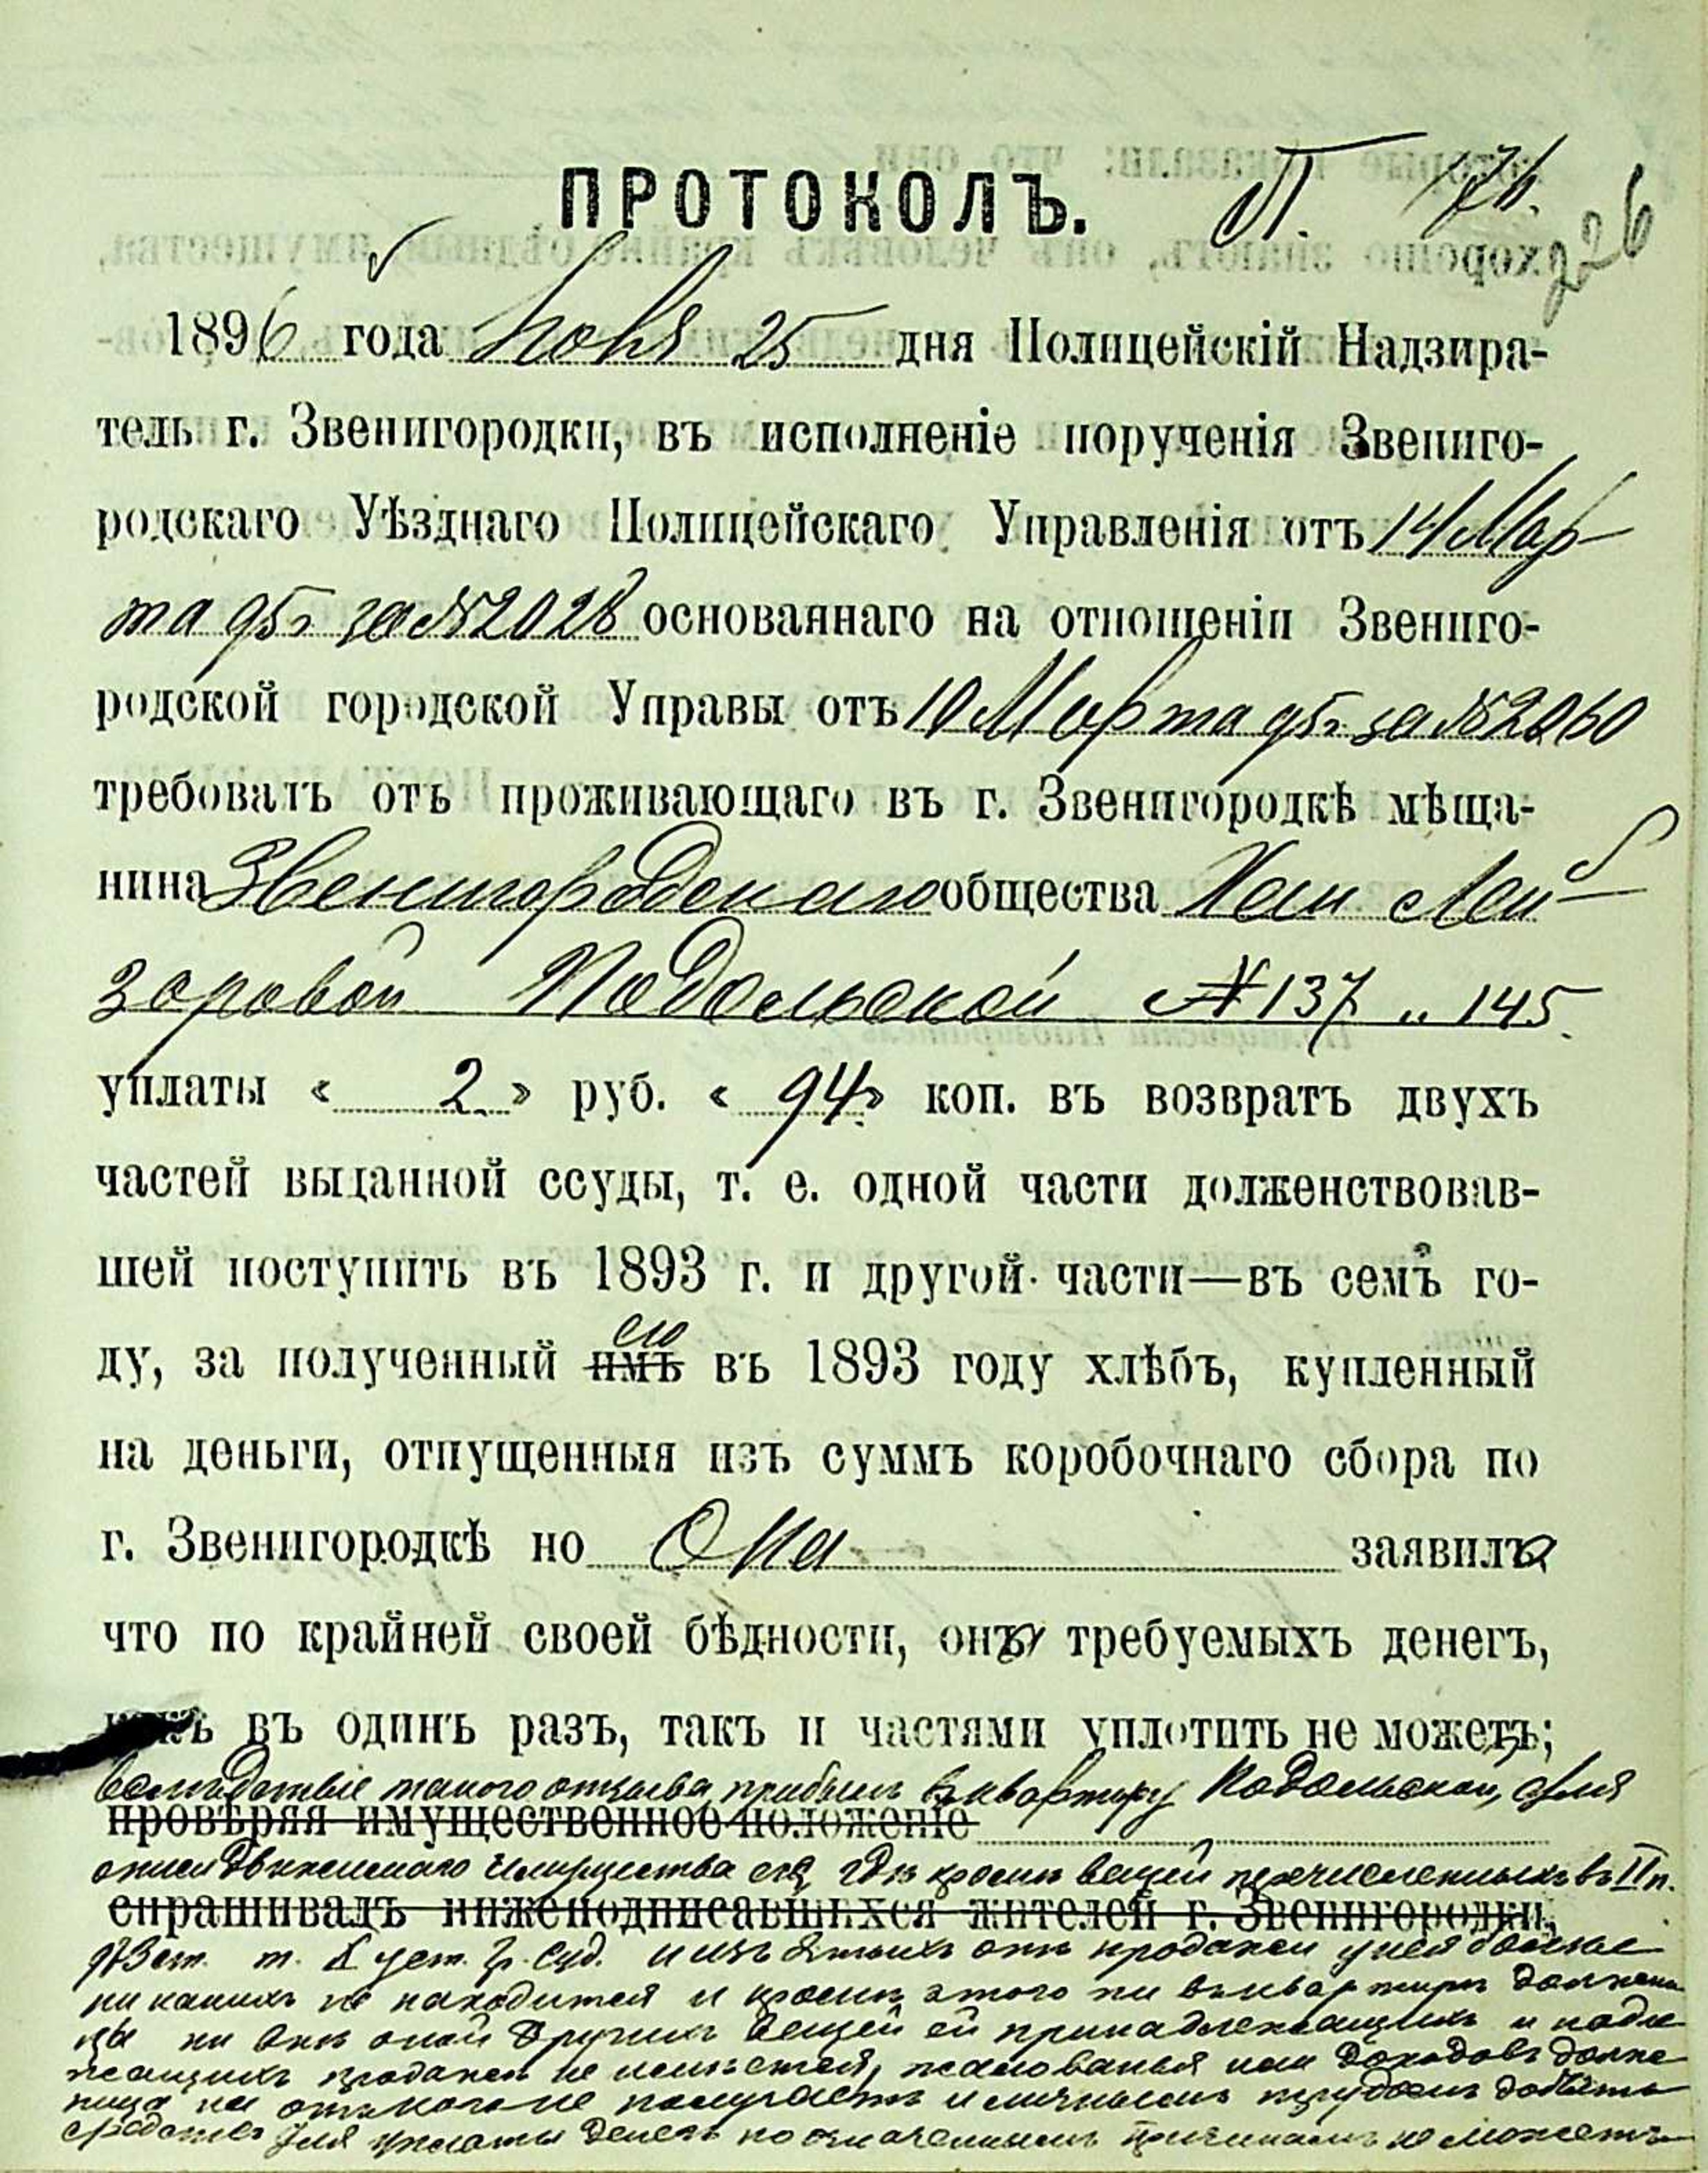 ПРОТОКОЛЪ. П. 176.
226
1896 года Ноя 25 дня Полицейскій Надзира-
тель г. Звенигородки, въ исполненіе порученія Звениго-
родскаго Уѣзднаго Полицейскаго Управленія отъ 14 Мар
та 95 г за № 2028 основаннаго на отношеніи Звениго-
родской городской Управы отъ 10 Марта 95 г. за № 2060
требовать отъ проживающаго въ г. Звенигородкѣ мѣща-
нина Звенигородскаго общества Хаи Лей
зоровой Подольской № 137 и 145
уплаты « 2 » руб. « 94 » коп. въ возвратъ двухъ
частей выданной ссуды, т. е. одной части долженствовав-
шей поступить въ 1893 г. и другой части—въ семъ го-
ею
ду, за полученный имъ въ 1893 году хлѣбъ, купленный
на деньги, отпущенныя изъ суммъ коробочнаго сбора по
г. Звенигородкѣ но Она заявила
что по крайней своей бѣдности, она требуемыхъ денегъ,
какъ въ одинъ разъ, такъ и частями уплотить не можетъ;
вслѣдствіе такого отзыва, прибылъ въ квартиру Подольской, для
провѣряя имущественное положеніе
описи движимаго имущества ея, гдѣ кромѣ вещей перечисленныхъ въ II п.
спрашивалъ нижеподписавшихся жителей г. Звенигородки,
973 ст. т. X уст. гр. суд. и изъятыхъ отъ продажи у нея больше
никакихъ не находится и кромѣ этого ни въ квартирѣ должни
цы ни внѣ оной другихъ вещей ей принадлежащихъ и подле
жащихъ продажѣ не имѣется, жалованья или доходовъ долж
ница ни отъ кого не получаетъ и личнымъ трудомъ добыть
средствъ для уплаты денегъ по означеннымъ причинамъ не можетъ